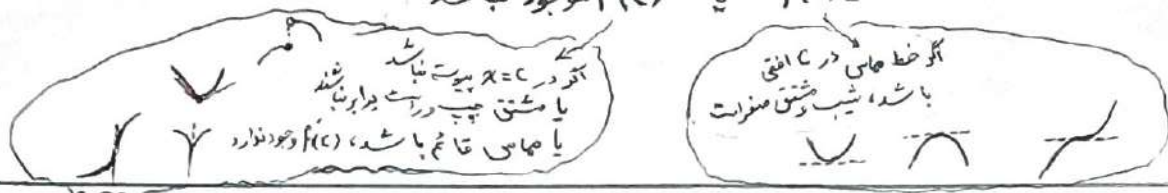 موجود نباشد
اگر در x=c پیوسته نباشد
یا مشتق چپ و راست برابر نباشند
یا مماس قائم باشد، f′(c) وجود ندارد
اگر خط مماس در c افقی
باشد، شیب و مشتق صفر است